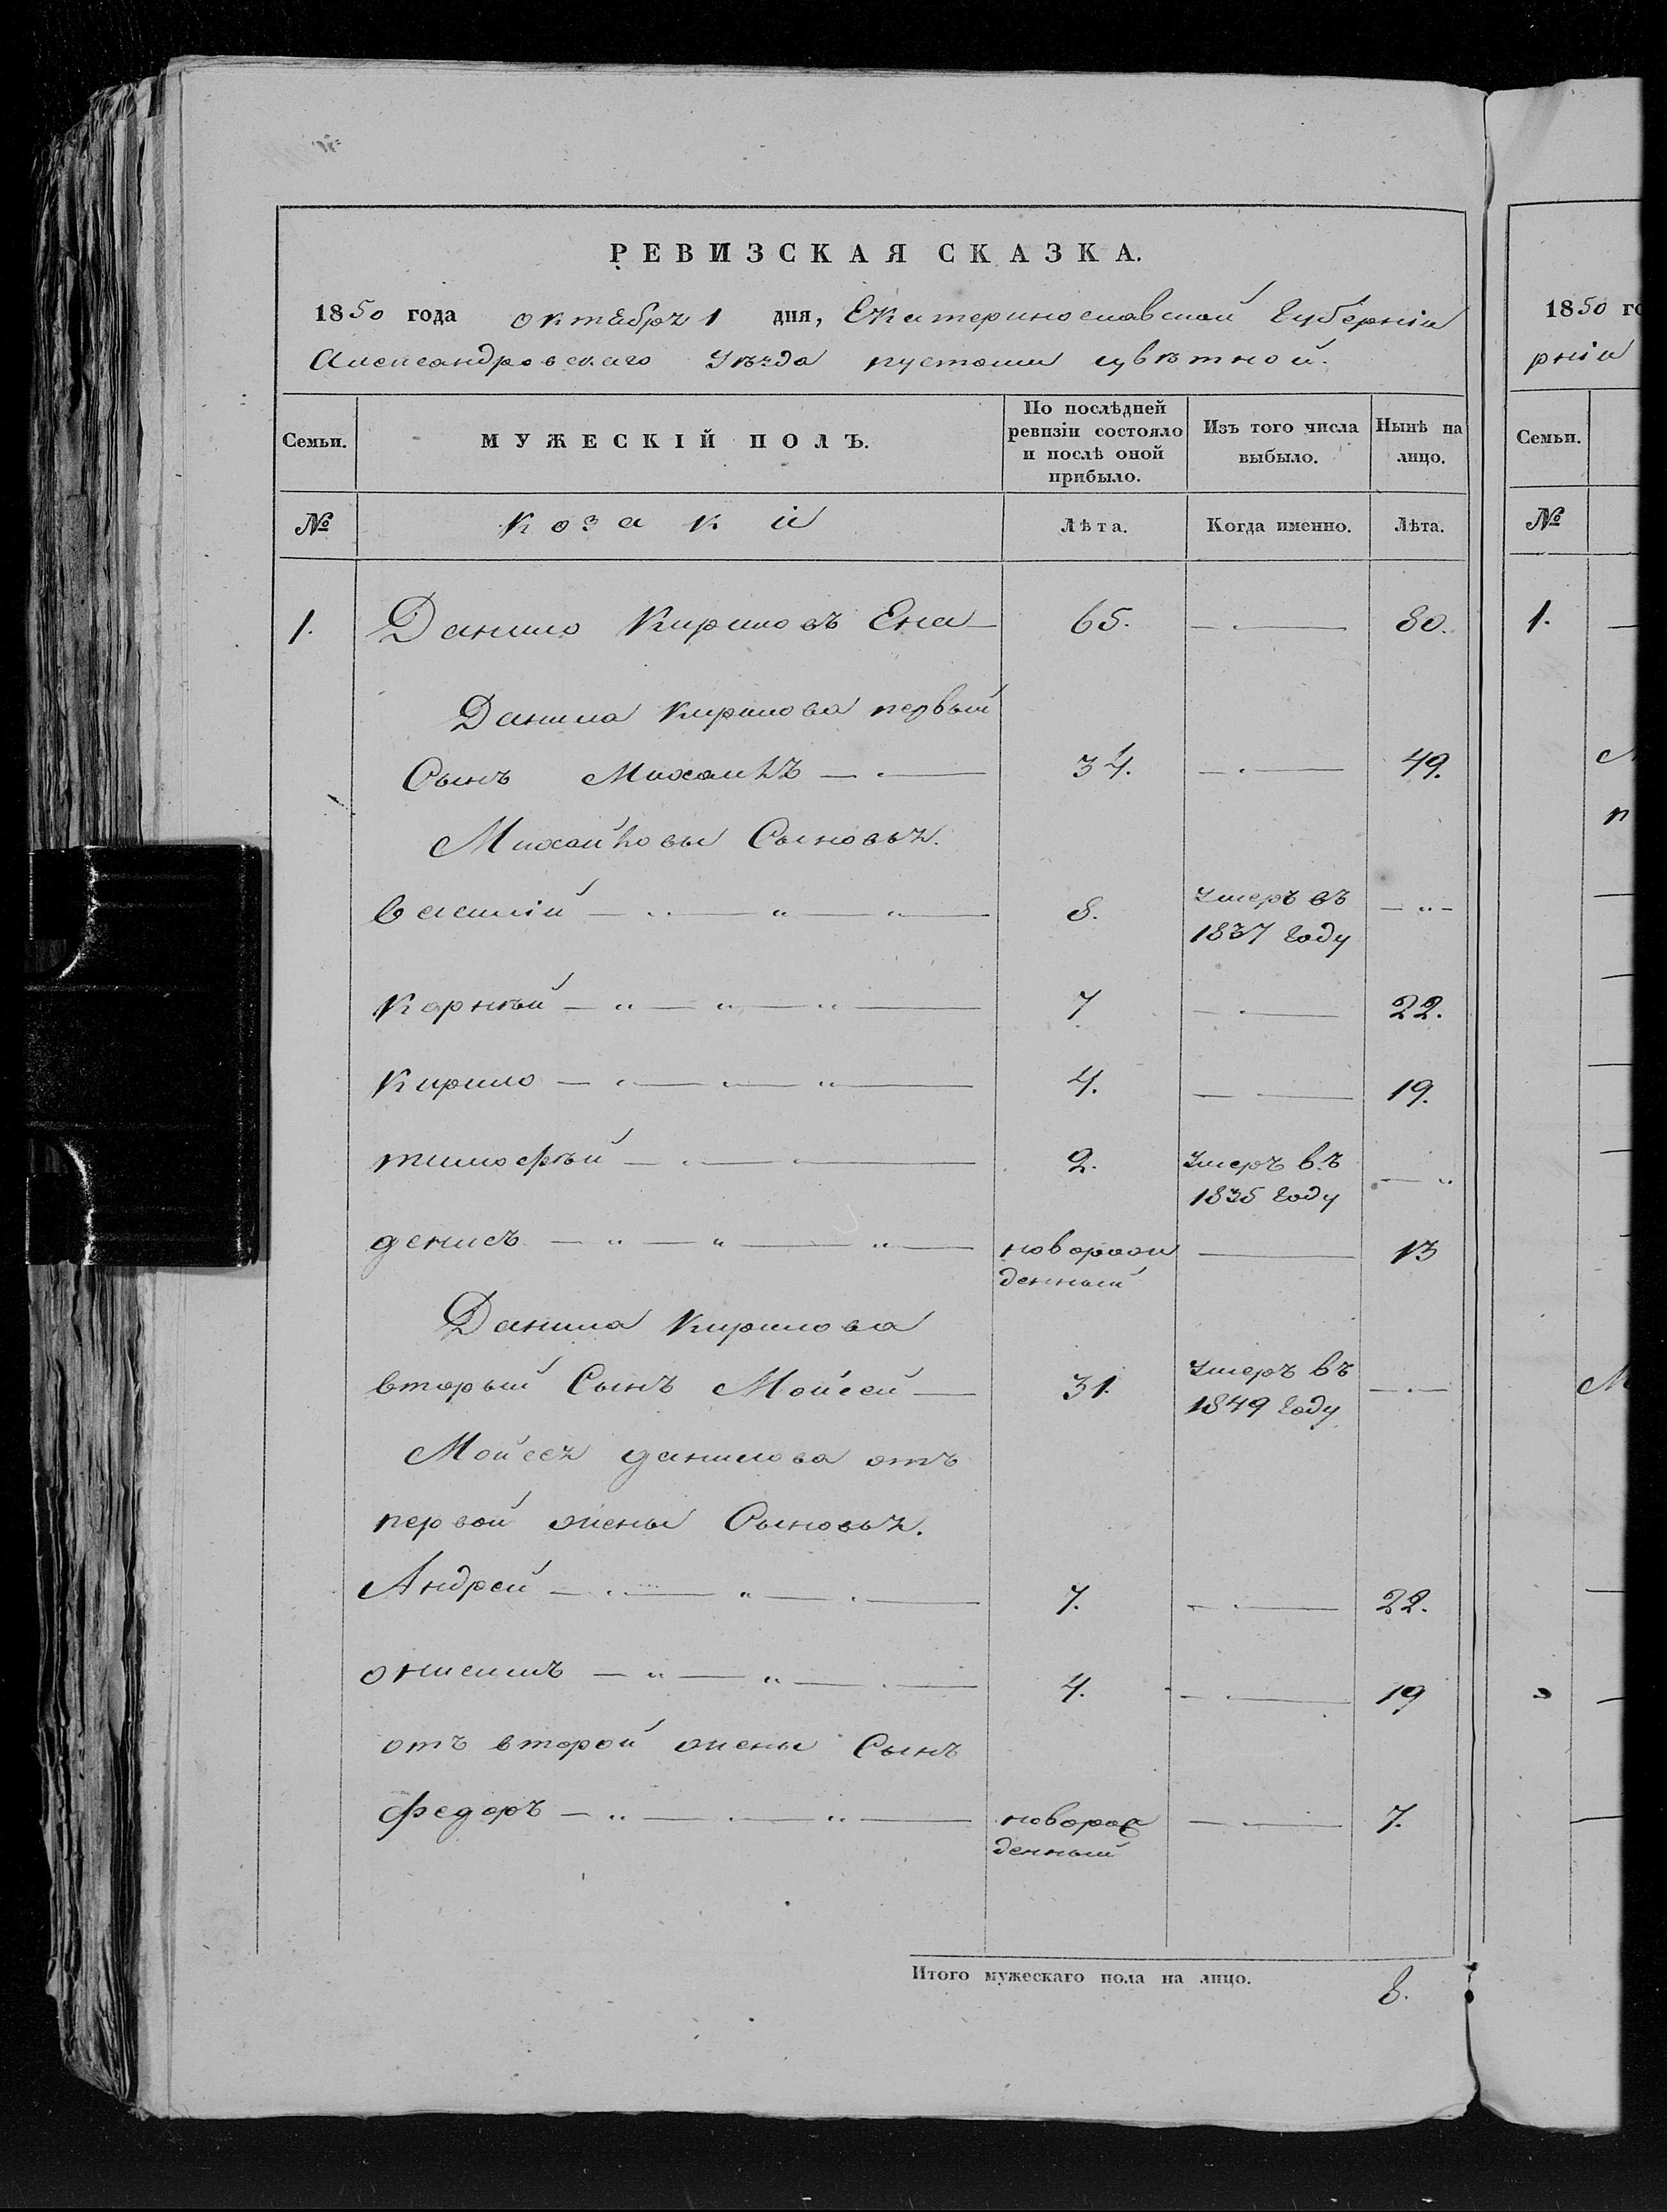 РЕВИЗСКАЯ СКАЗКА.
1850 года октября 1 дня, Екатеринославской Губерніи
Александровскаго Уѣзда пустоши цвѣтной.
Семьи. МУЖЕСКІЙ ПОЛЪ. По послѣдней ревизіи состояло и послѣ оной прибыло. Изъ того числа выбыло. Нынѣ на лицо.
№ козаки Лѣта. Когда именно. Лѣта.
1. Данило Кириловъ Ена 65. 80.
Данила Кирилова первый
Сынъ Михайла 34. 49.
Михайловы Сыновья.
Василій 8. умеръ въ 1837 году
Корнѣй 7 22.
Кирило 4. 19.
тимофѣй 2. умеръ въ 1835 году
денисъ новорожденный 13
Данила Кирилова
вторый Сынъ Мойсей 31. умеръ въ 1849 году
Мойсея данилова отъ
первой жены Сыновья.
Андрей 7. 22.
онисимъ 4. 19
отъ второй жены Сынъ
федоръ новорожденный 7.
Итого мужескаго пола на лицо. 8.
1850 го
рніи
Семьи.
№
1.